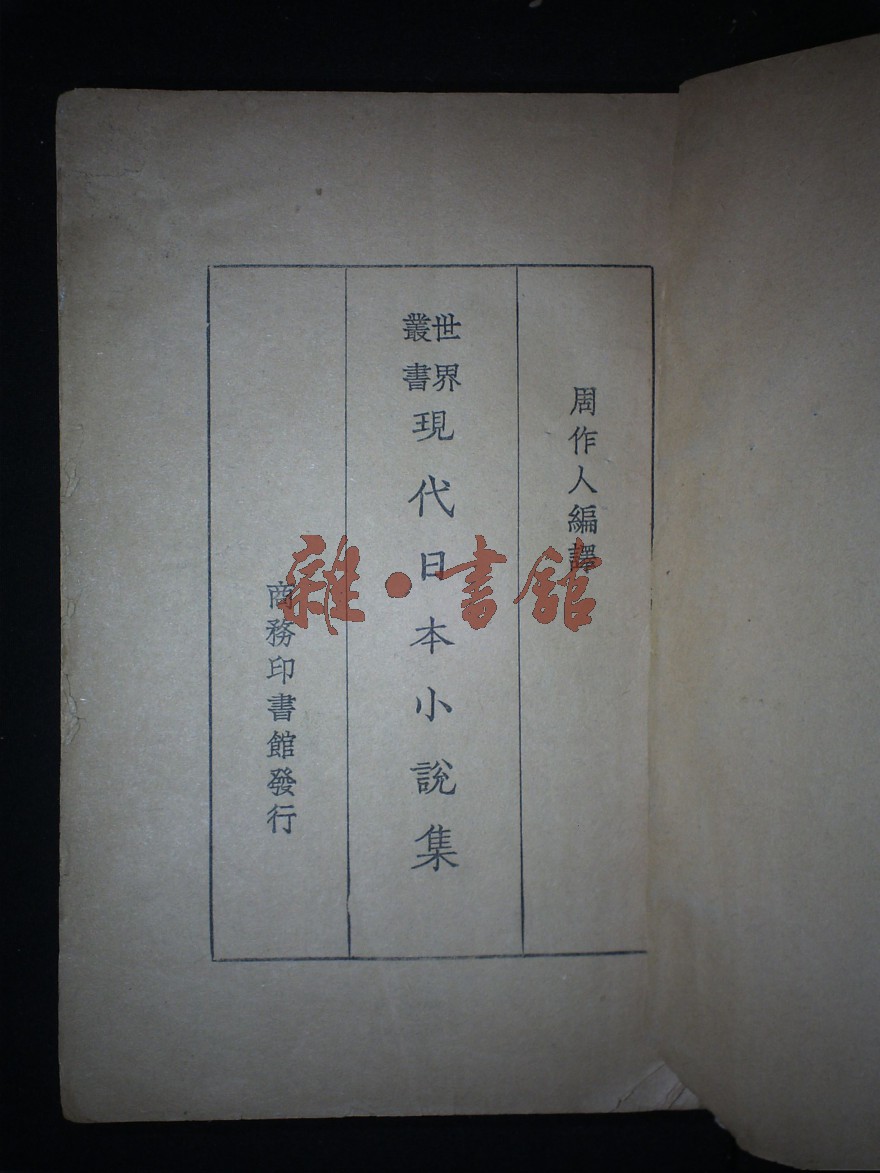 周作人編譯
世界叢書
現代日本小說集
商務印書館發行
雜·書館